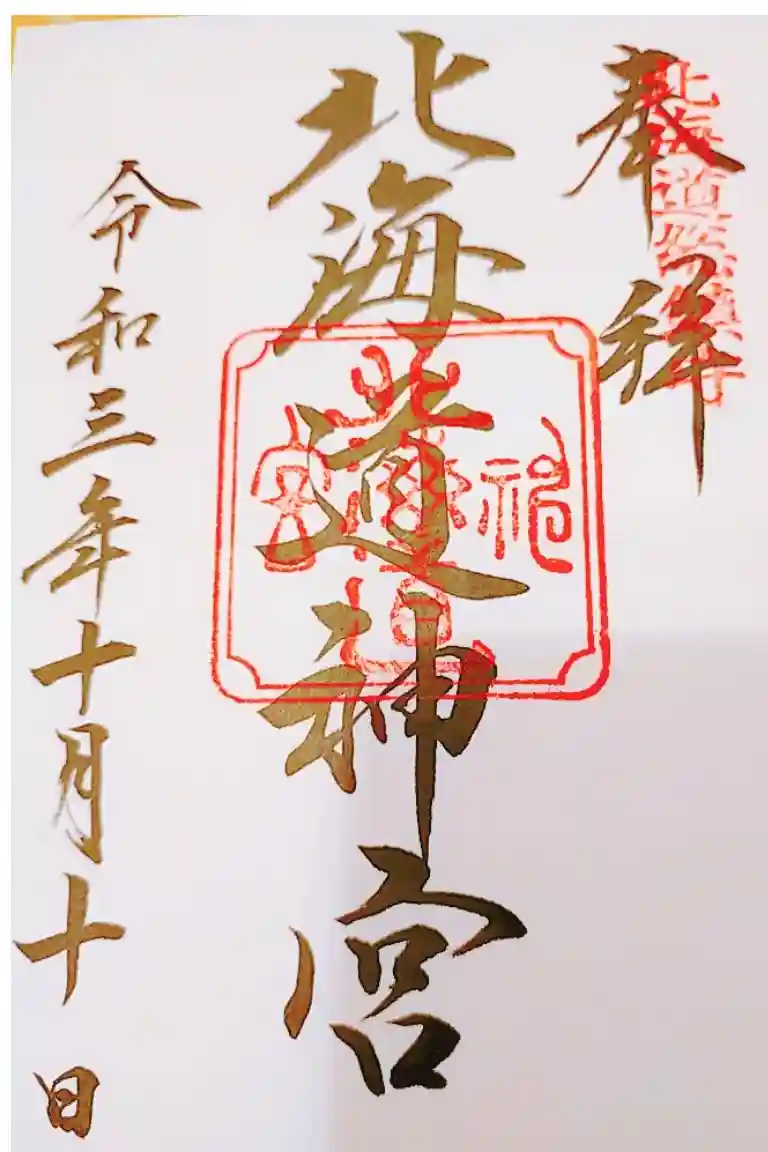 奉拝
北海道総鎮守
北海道神宮
令和三年十月十日